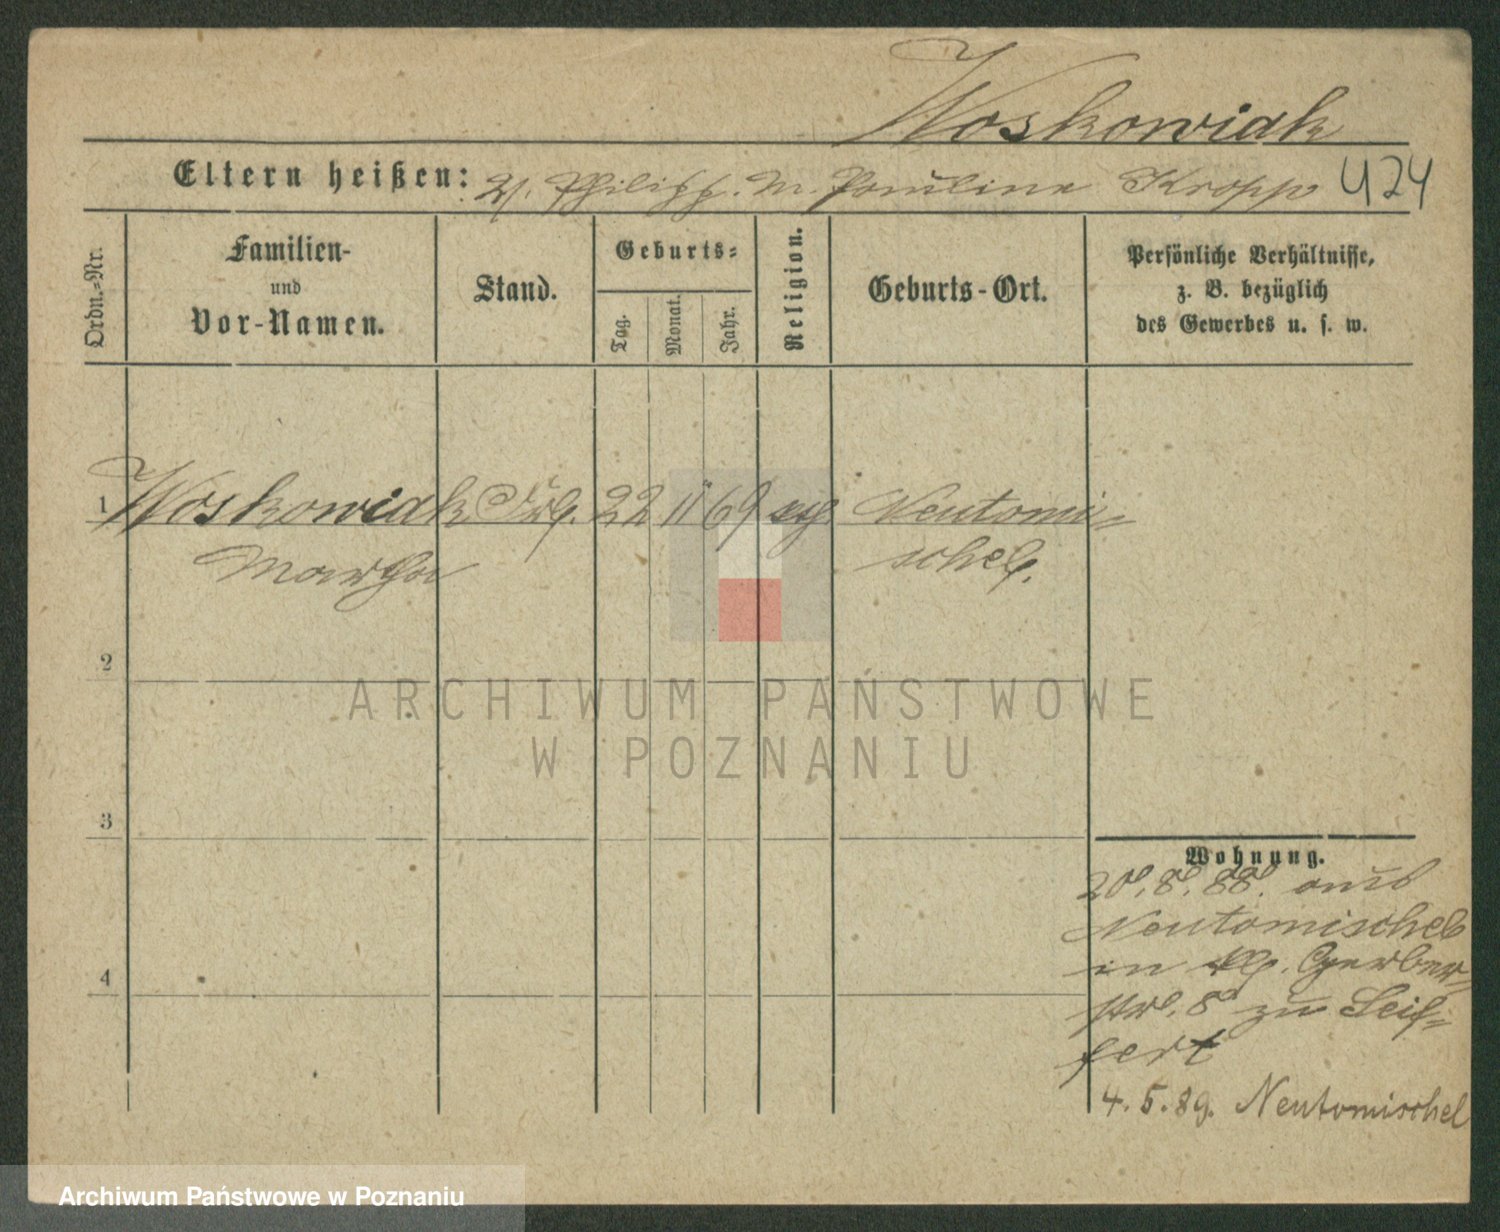 Woskowiak
Eltern heißen: V. Philipp. M. Pauline Kropp
424
Ordn.-Nr.
Familien-
und
Vor-Namen.
Stand.
Geburts-
Tag.
Monat.
Jahr.
Religion.
Geburts-Ort.
Persönliche Verhältnisse,
z. B. bezüglich
des Gewerbes u. s. w.
1 Woskowiak Frl. 22 11 69 ev Neutomi-
Martha schel.
2
3
4
Wohnung.
20. 8. 88. aus
Neutomischel
in Gerber-
str. 8 zu Seif-
fert
4. 5. 89. Neutomischel
ARCHIWUM PAŃSTWOWE
W POZNANIU
Archiwum Państwowe w Poznaniu